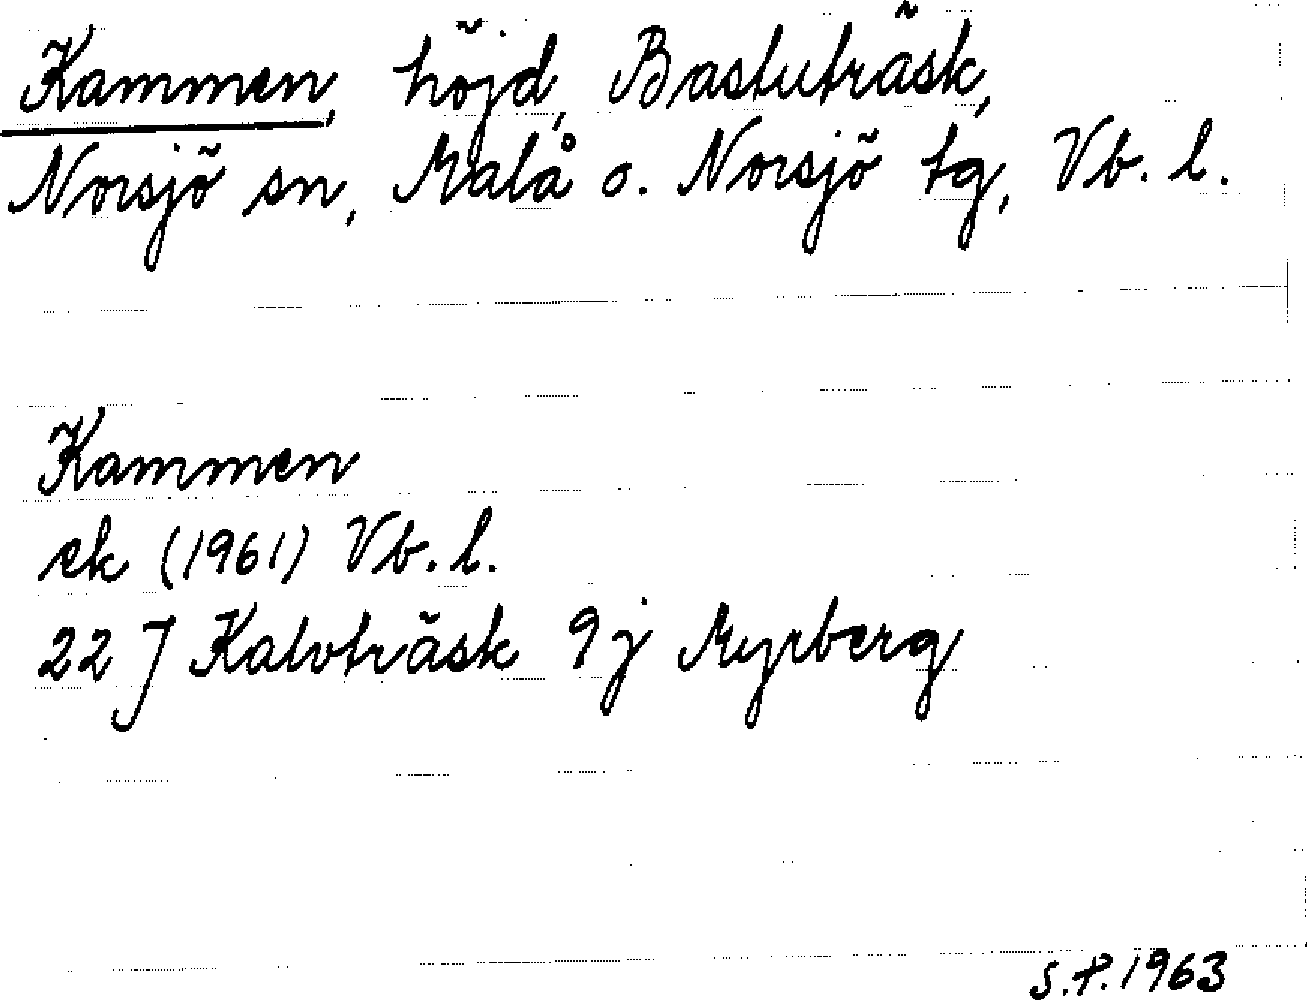 Kammen, höjd, Bastuträsk,
Norsjö sn, Malå o. Norsjö tg, Vb. l.
Kammen
ek (1961) Vb. l.
22 J Kalvträsk 9j Myrberg
S.P. 1963